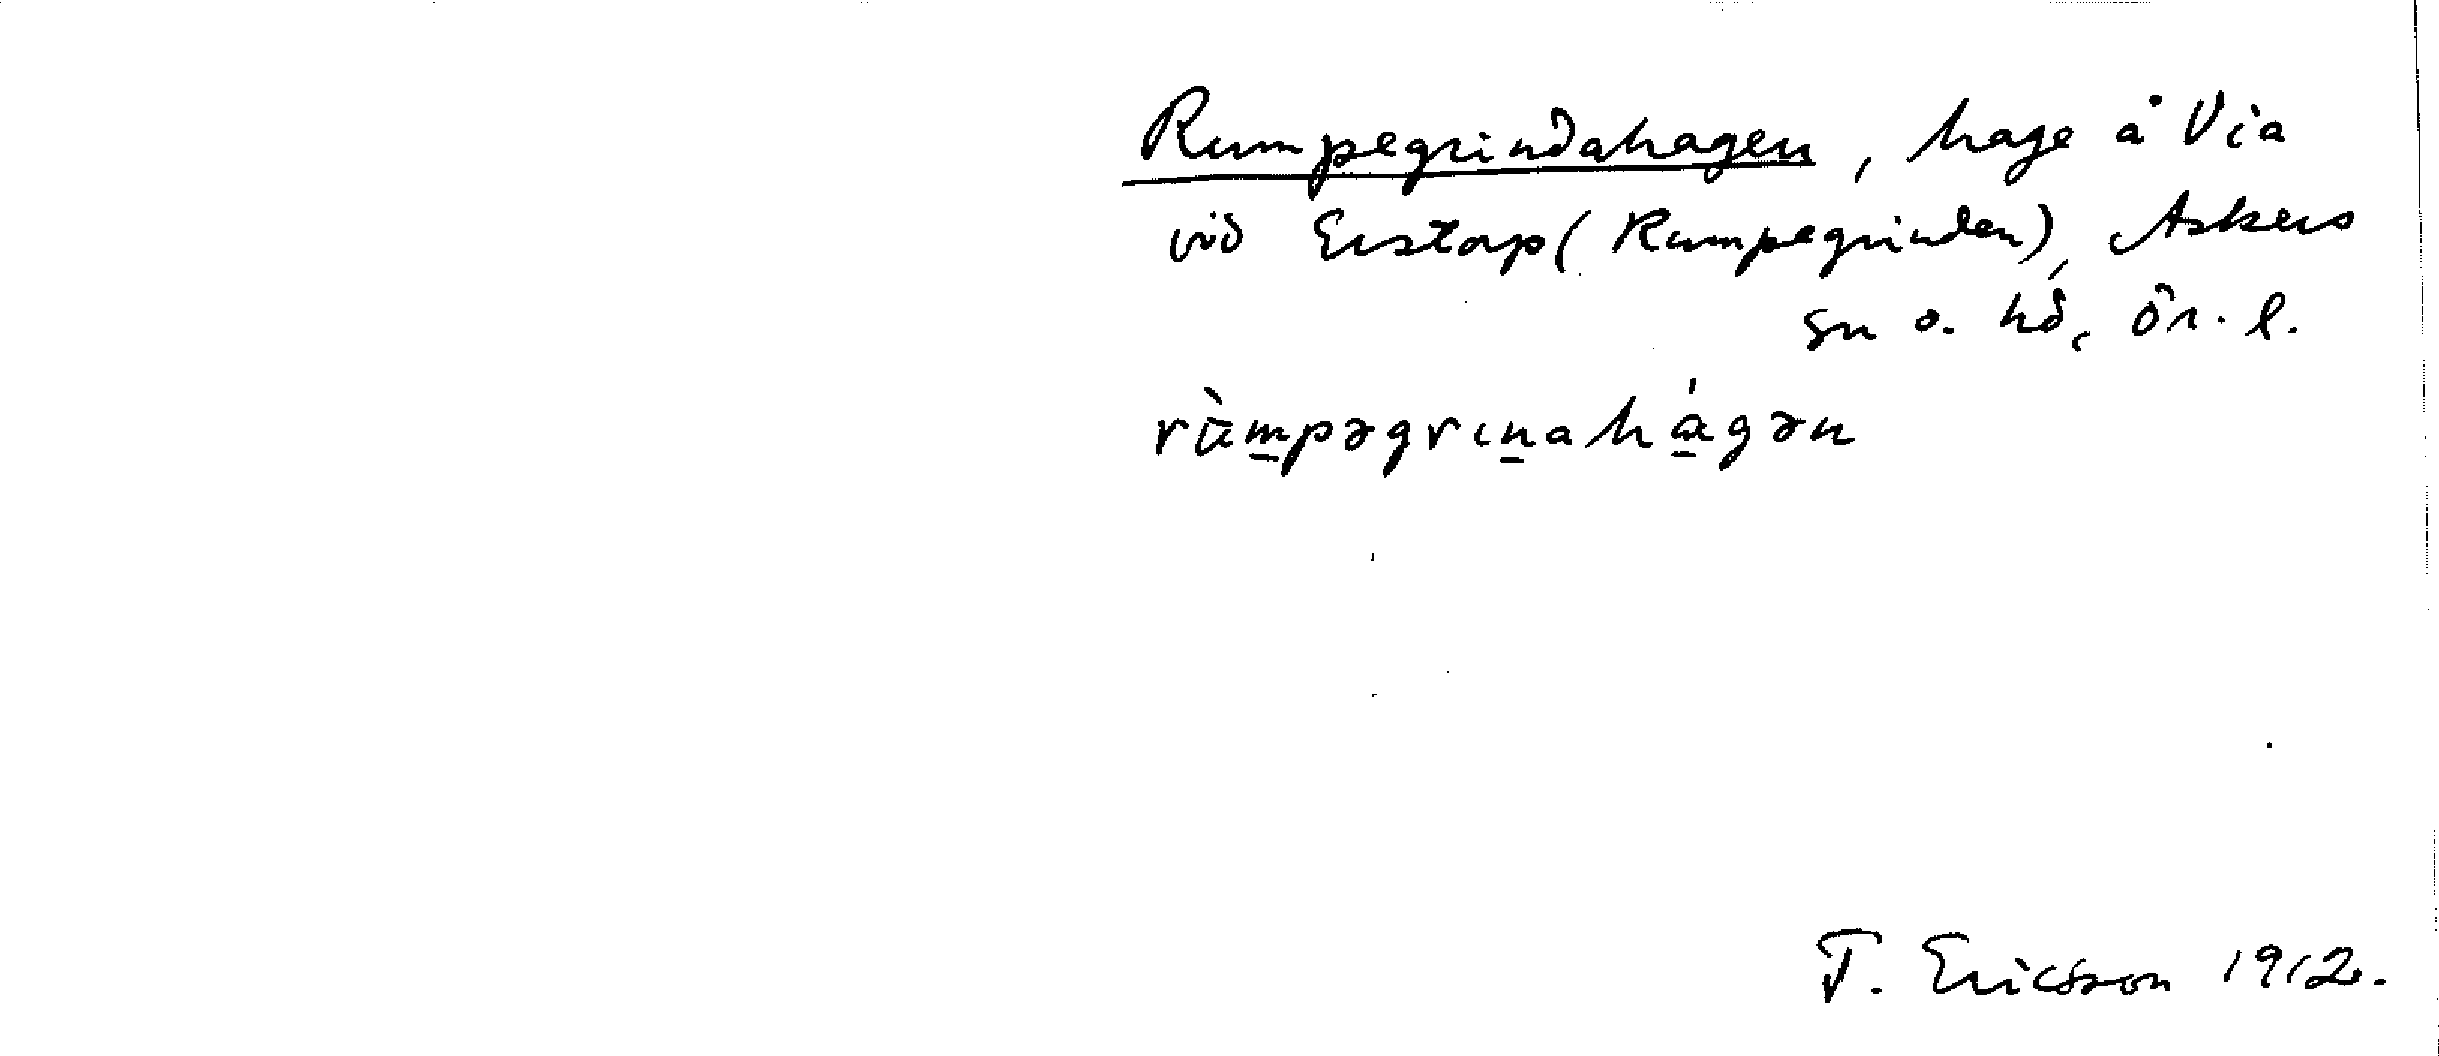 Rumpegrindahagen, hage å Via
vid Erstorp (Rumpegrinden), Askers
sn o. hd, Ör. l.
rùmpəgrınahágən
T. Ericsson 1912.